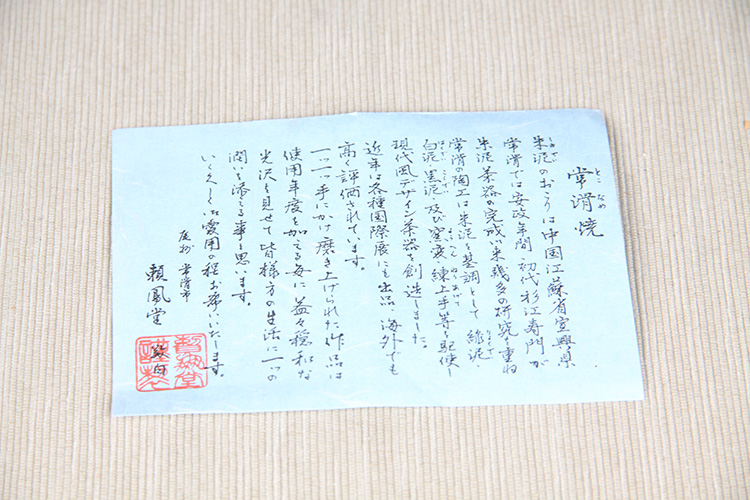 常滑焼
とこなめ
朱泥のおこりは中国江蘇省宜興県
しゅでい
常滑では安政年間・初代杉江寿門が
朱泥茶器の完成以来幾多の研究を重ね
常滑の陶工は朱泥を基調として 緑泥・
白泥 黒泥 及び窯変 練上手等を駆使し
現代風デザイン茶器を創造しました。
近年は各種国際展にも出品、海外でも
高く評価されています。
一つ一つ手にかけ磨き上げられた作品は
使用年度を加える毎に益々穏和な
光沢を見せて皆様方の生活に一つの
潤いを添える事と思います。
いく久しく御愛用の程お願いいたします。
尾州 常滑市
頼鳳堂 敬白